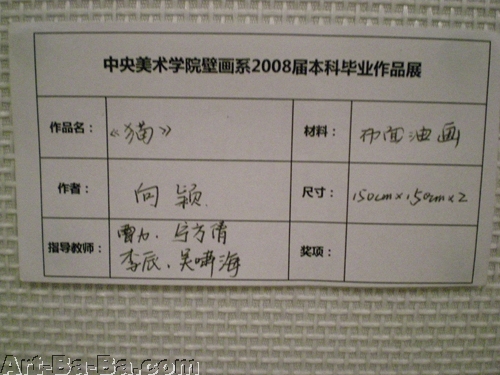 中央美术学院壁画系2008届本科毕业作品展
作品名： 《猫》 材料： 布面油画
作者： 向颖 尺寸： 150cm×150cm×2
指导教师： 曹力、方倩 奖项：
李辰、吴啸海
Art-Ba-Ba.com